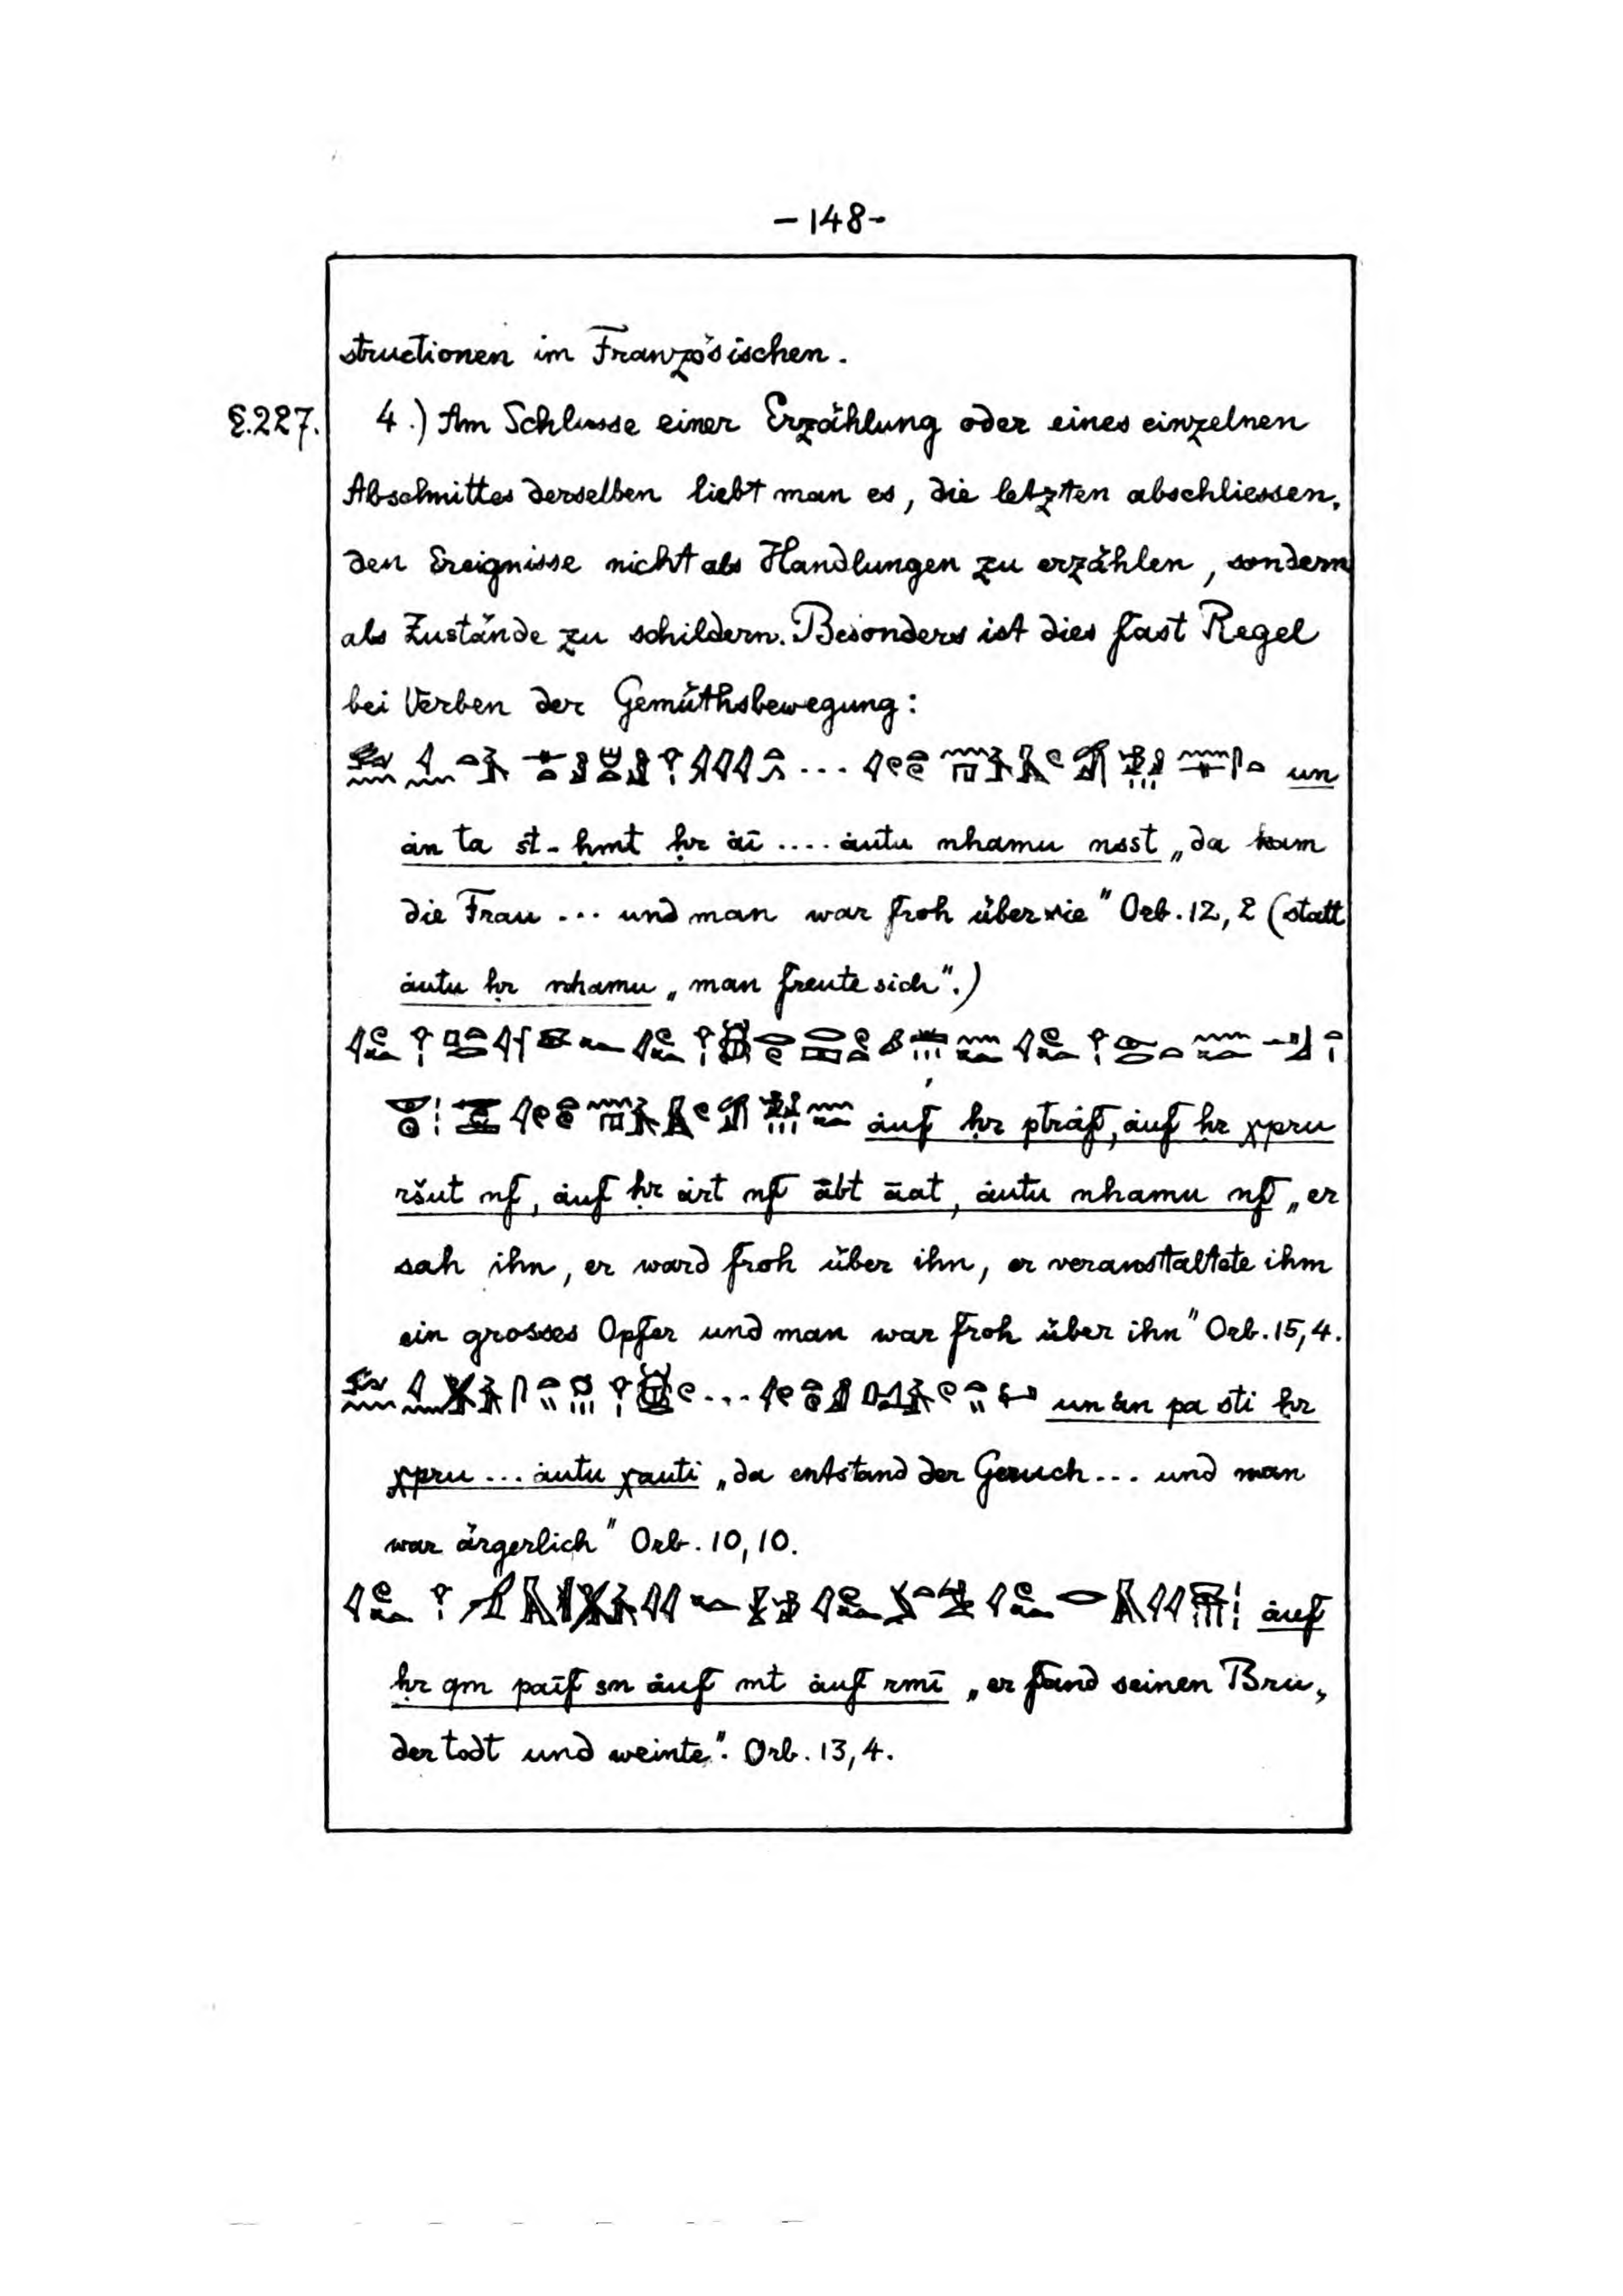 -148-
structionen im Französischen.
§.227. 4.) Am Schlusse einer Erzählung oder eines einzelnen
Abschnittes derselben liebt man es, die letzten abschliessen,
den Ereignisse nicht als Handlungen zu erzählen, sondern
als Zustände zu schildern. Besonders ist dies fast Regel
bei Verben der Gemüthsbewegung:
... un
ȧn ta st-ḥmt ḥr ȧī .... ȧutu nhamu nsst „da kam
die Frau ... und man war froh über sie" Orb. 12, 2 (statt
ȧutu ḥr nhamu „man freute sich".)
ȧuf ḥr ptrȧf, ȧuf ḥr χpru
ršut nf, ȧuf ḥr ȧrt nf ābt āat, ȧutu nhamu nf „er
sah ihn, er ward froh über ihn, er veranstaltete ihm
ein grosses Opfer und man war froh über ihn" Orb. 15, 4.
... unȧn pa sti ḥr
χpru ... ȧutu χauti „da entstand der Geruch ... und man
war ärgerlich" Orb. 10, 10.
ȧuf
ḥr qm paīf sn ȧuf mt ȧuf rmī „er fand seinen Bru,
der todt und weinte". Orb. 13, 4.